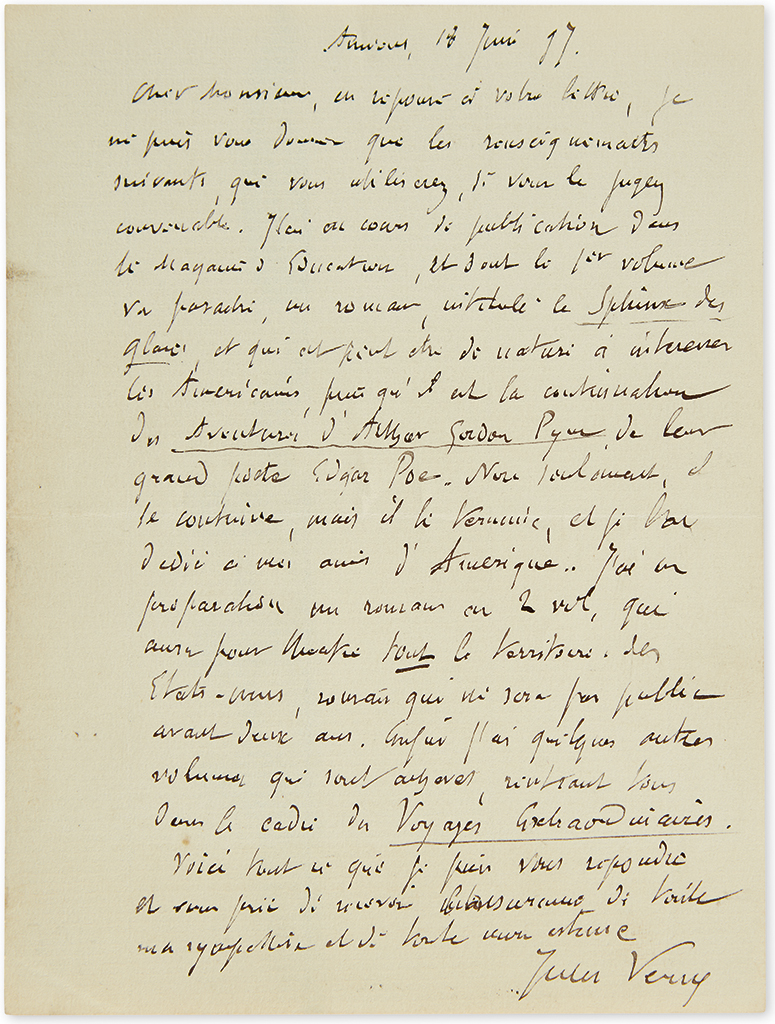 Amiens, 18 Juin 97.
Cher Monsieur, en réponse à votre lettre, je
ne puis vous donner que les renseignements
suivants, que vous utiliserez, si vous le jugez
convenable. J'ai en cours de publication dans
le Magasin d'Education, et dont le 1er volume
va paraître, un roman, intitulé le Sphinx des
glaces, et qui est peut être de nature à intéresser
les Américains, puisqu'il est la continuation
des Aventures d'Arthur Gordon Pym, de leur
grand poëte Edgar Poe. Non seulement, il
le continue, mais il le termine, et je l'ai
dédié à mes amis d'Amérique.. J'ai en
préparation un roman en 2 vol, qui
aura pour théatre tout le territoire des
Etats-unis, roman qui ne sera pas publié
avant deux ans. Enfin j'ai quelques autres
volumes qui sont achevés, rentrant tous
dans le cadre des Voyages Extraordinaires.
Voici tout ce que je puis vous répondre
et vous prie de recevoir l'assurance de toute
ma sympathie et de toute mon estime
Jules Verne